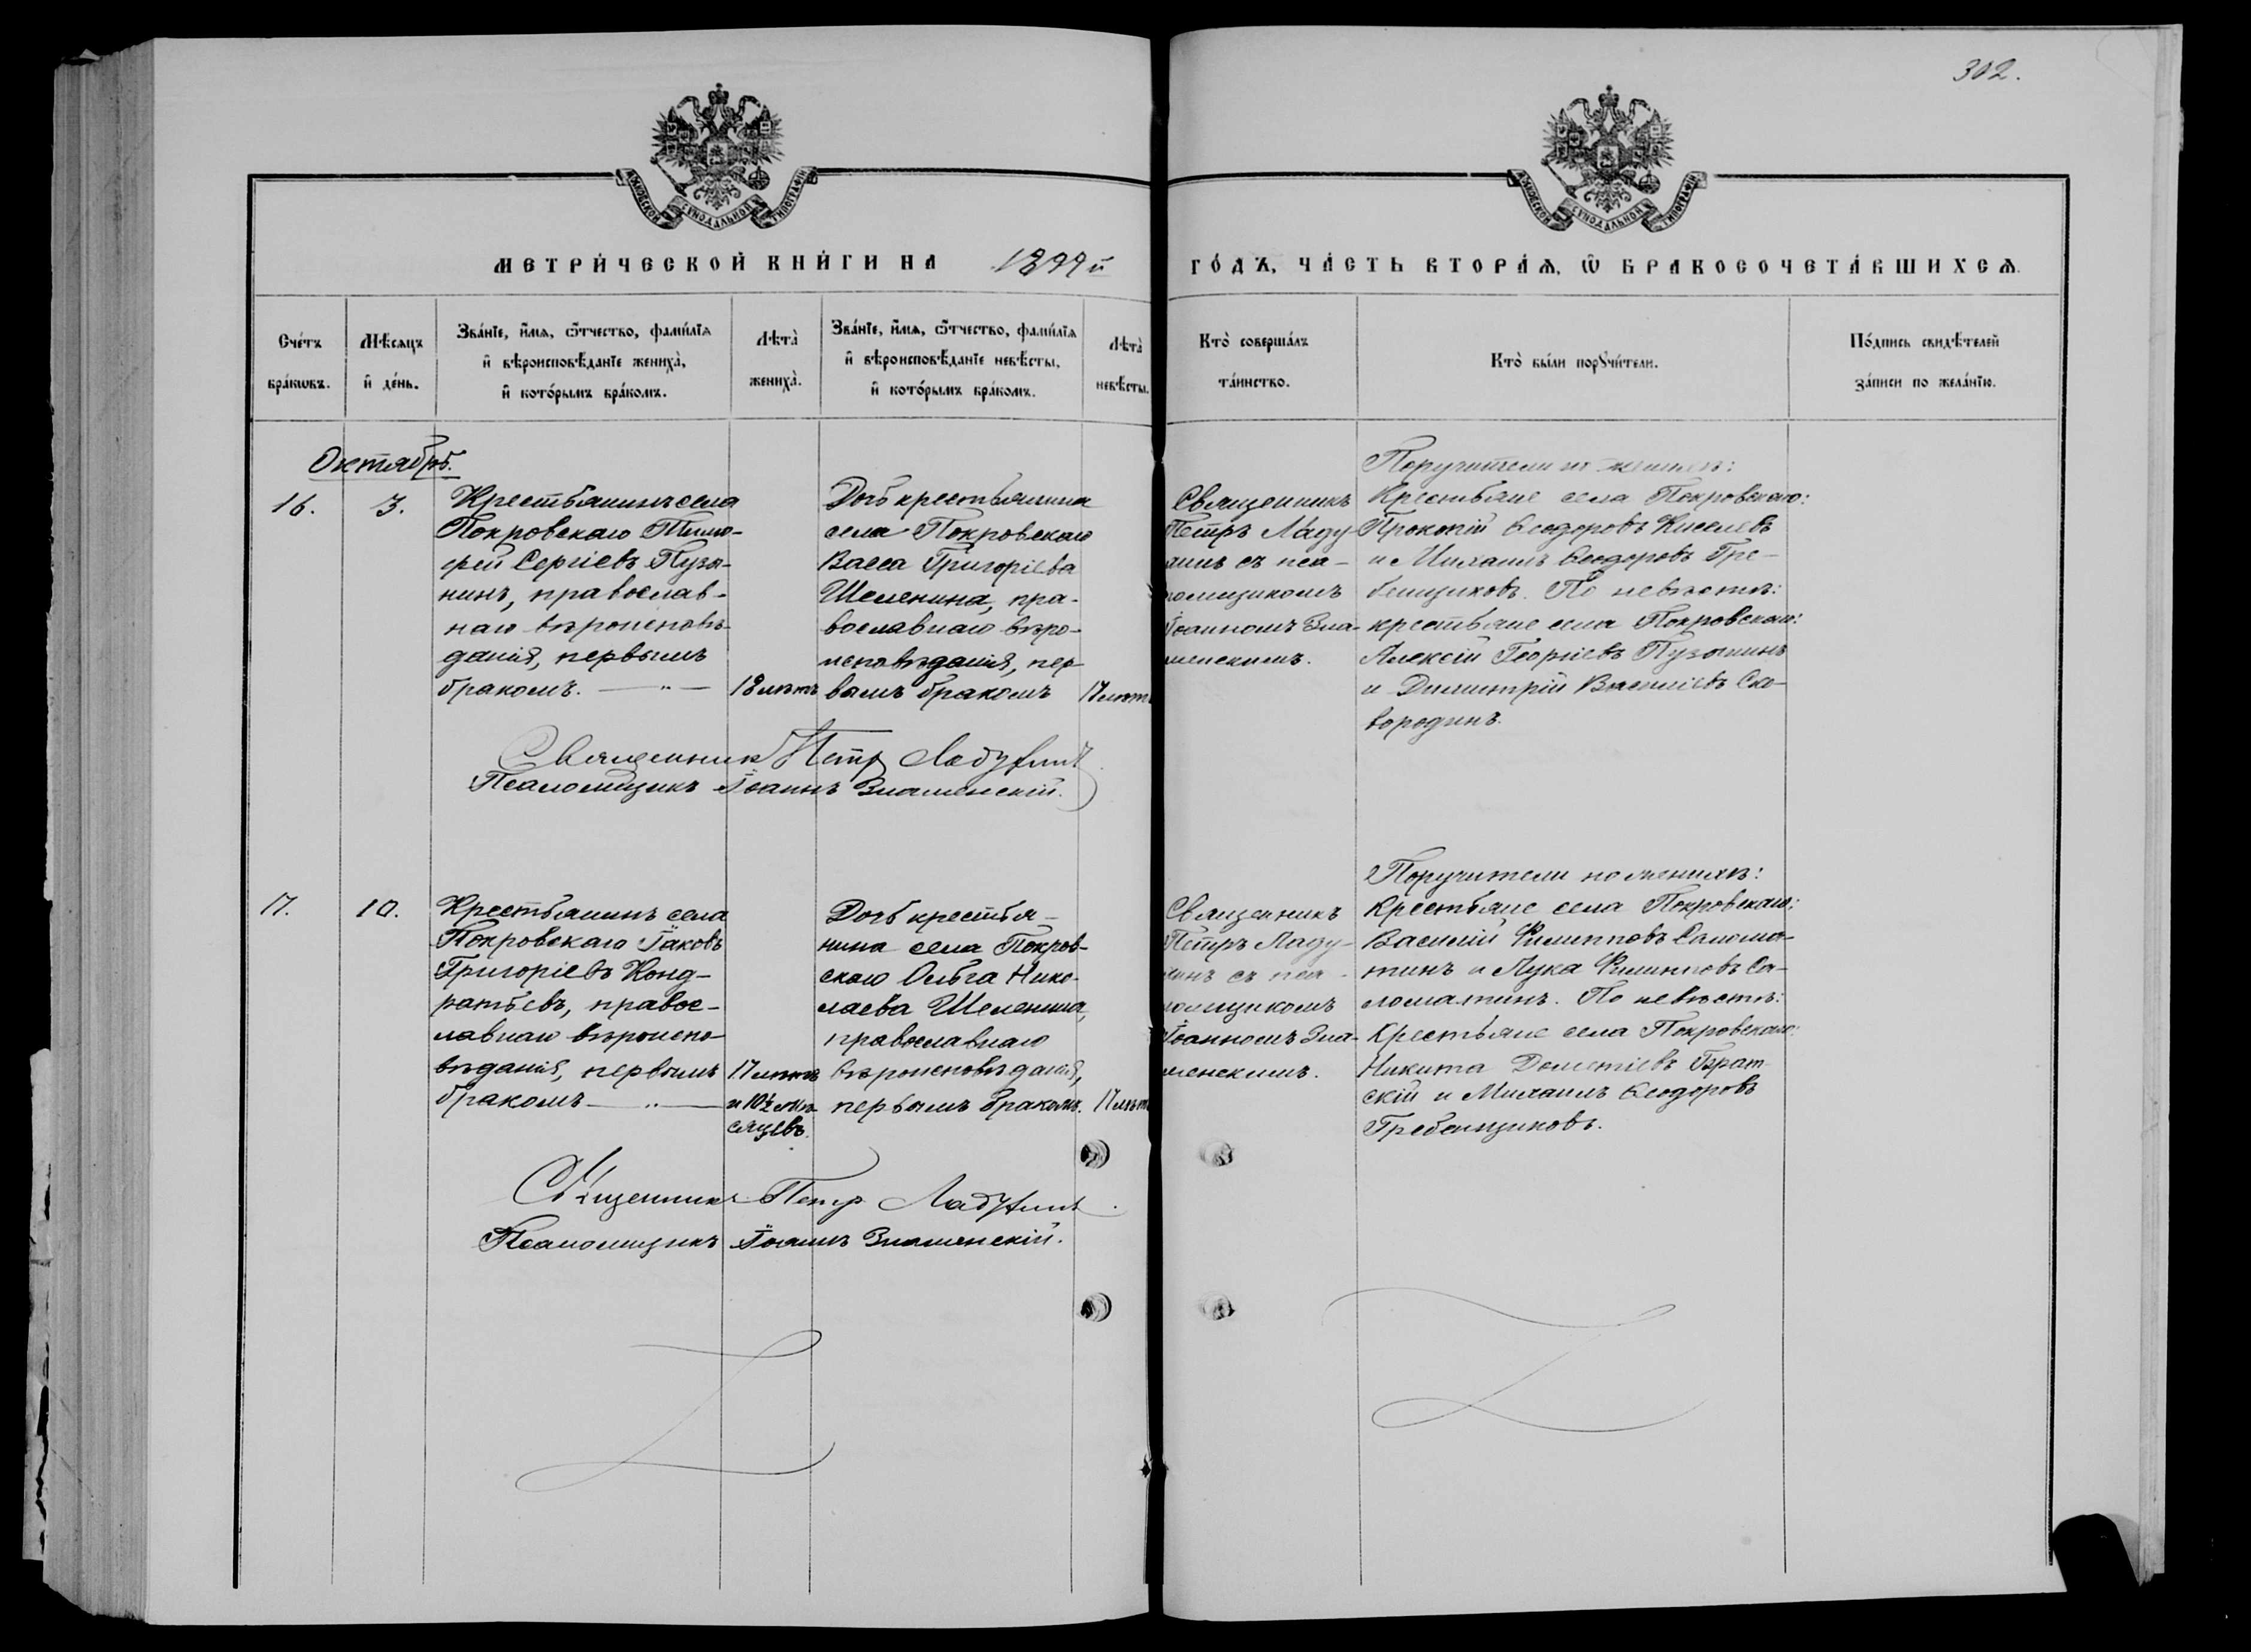 302.
МОСКОВСКОЙ СѴНОДАЛЬНОЙ ТИПОГРАФІИ
МОСКОВСКОЙ СѴНОДАЛЬНОЙ ТИПОГРАФІИ
МЕТРИ́ЧЕСКОЙ КНИ́ГИ НА 1899 й
ГО́ДЪ, ЧА́СТЬ ВТОРА́Ѧ, Ѿ БРАКОСОЧЕТА́ВШИХСѦ.
Сче́тъ
бра́кѡвъ.
Мѣ́сѧцъ
и҆ де́нь.
Зва́нїе, и҆́мѧ, ѻ҆́тчество, фами́лїѧ
и҆ вѣроисповѣ́данїе жениха̀,
и҆ кото́рымъ бра́комъ.
Лѣта̀
жениха̀.
Зва́нїе, и҆́мѧ, ѻ҆́тчество, фами́лїѧ
и҆ вѣроисповѣ́данїе невѣ́сты,
и҆ кото́рымъ бра́комъ.
Лѣта̀
невѣ́сты.
Кто̀ соверша́лъ
та́инство.
Кто̀ бы́ли порꙋчи́тели.
По́дпись свидѣ́телей
за́писи по жела́нїю.
Октябрь.
16.
3.
Крестьянинъ села
Покровскаго Тимо-
фей Сергіевъ Пузы-
нинъ, православ-
наго вѣроисповѣ-
данія, первымъ
бракомъ. — " —
18 лѣтъ
Дочь крестьянина
села Покровскаго
Васса Григоріева
Шеленина, пра-
вославнаго вѣро-
исповѣданія, пер-
вымъ бракомъ
17 лѣтъ
Священникъ
Петръ Ладу-
нинъ съ пса-
ломщикомъ
Іоанномъ Зна-
менскимъ.
Поручители по женихѣ:
Крестьяне села Покровскаго:
Прокопій Ѳеодоровъ Киселевъ
и Михаилъ Ѳеодоровъ Гре-
бенщиковъ. По невѣстѣ:
крестьяне села Покровскаго:
Алексій Георгіевъ Пузынинъ
и Димитрій Василіевъ Ско-
вородинъ.
Священникъ Петръ Ладунинъ
Псаломщикъ Іоаннъ Знаменскій.
17.
10.
Крестьянинъ села
Покровскаго Іаковъ
Григоріевъ Конд-
ратьевъ, правос-
лавнаго вѣроиспо-
вѣданія, первымъ
бракомъ — " —
17 лѣтъ
и 10½ мѣ-
сяцевъ.
Дочь крестья-
нина села Покров-
скаго Ольга Нико-
лаева Шеленина,
православнаго
вѣроисповѣданія,
первымъ бракомъ.
17 лѣтъ
Священникъ
Петръ Ладу-
нинъ съ пса-
ломщикомъ
Іоанномъ Зна-
менскимъ.
Поручители по женихѣ:
Крестьяне села Покровскаго:
Василій Филипповъ Салома-
тинъ и Лука Филипповъ Са-
ломатинъ. По невѣстѣ:
Крестьяне села Покровскаго:
Никита Дометіевъ Брат-
скій и Михаилъ Ѳеодоровъ
Гребенщиковъ.
Священникъ Петръ Ладунинъ.
Псаломщикъ Іоаннъ Знаменскій.